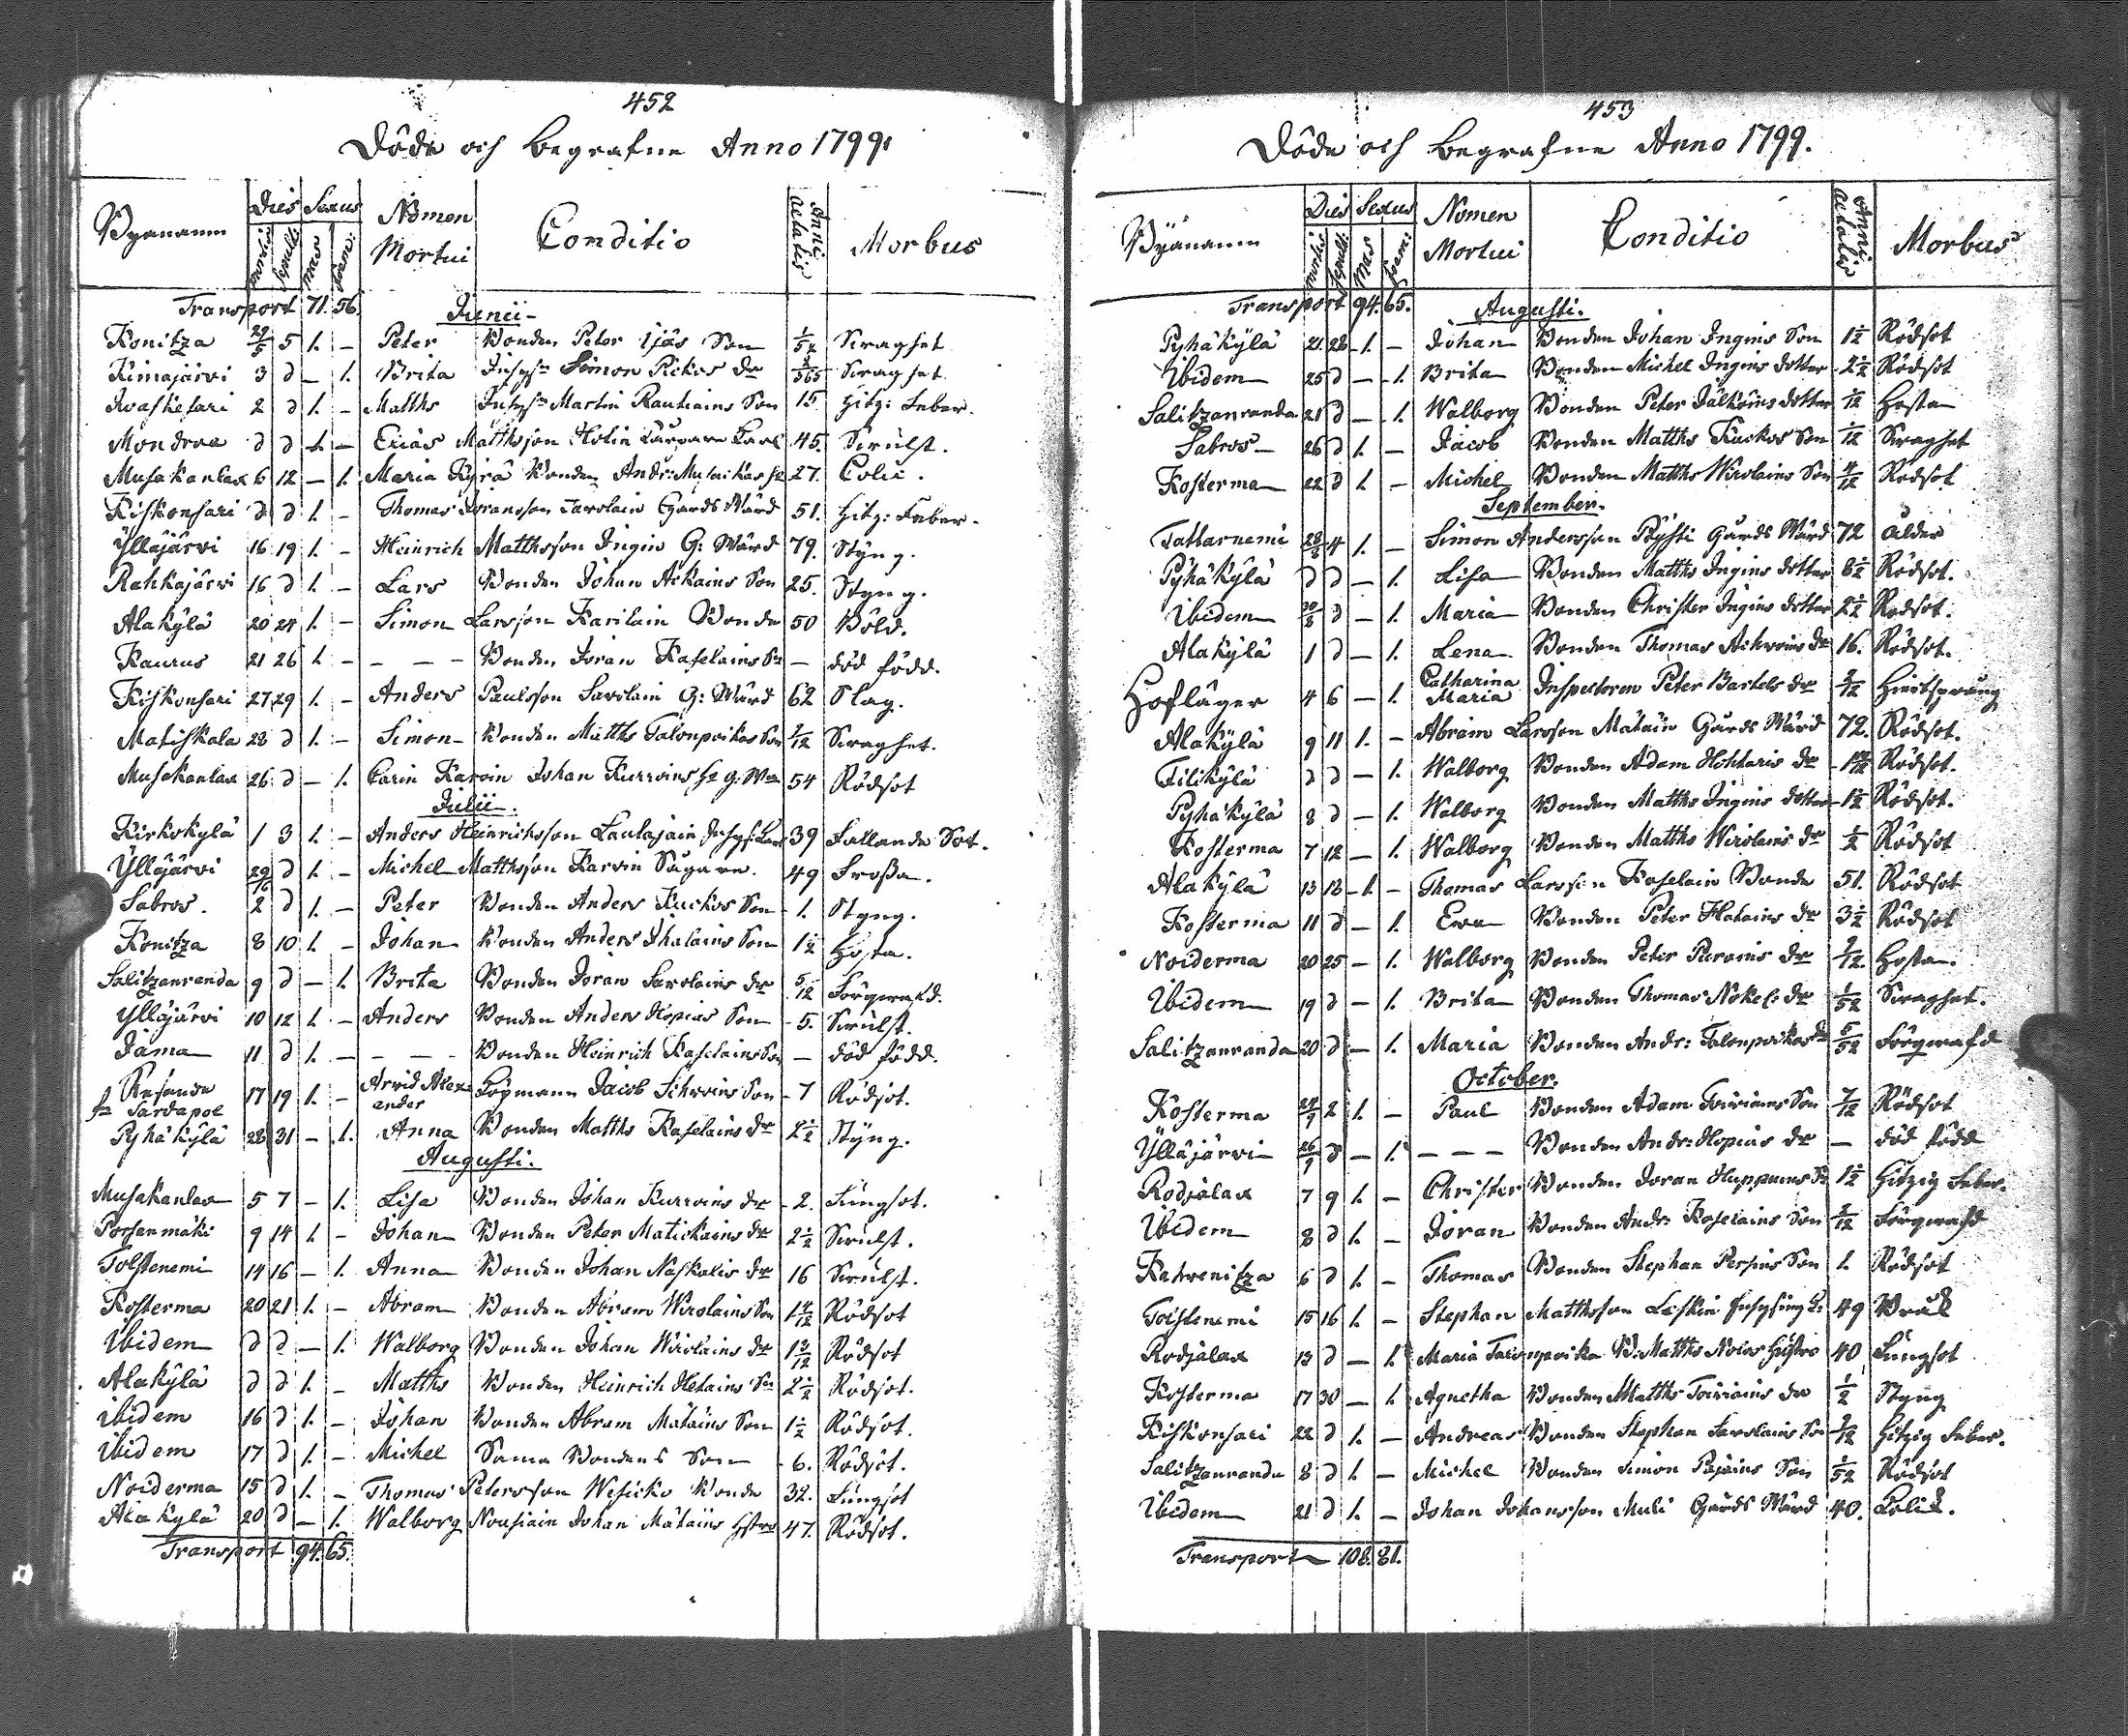 452
Döde och Begrafne Anno 1799.
Bynamn Dies Sexus Nomen Mortui Conditio Anni aetatis Morbus
mortis sepult: mas foem:
Transport 71. 56. Junii
Konitza 29/5 5 1. – Peter Bonden Peter Ijäs Son 1/52 Swaghet
Kimajärvi 3 d – 1. Brita Inhys: Simon Pickos dr 3/365 Swaghet
2 d 1. – Matths Inhys: Martin Rautiains Son 15 Hitz: Feber.
Mondroa d d 1. – Matthsson 45. Swulst.
Musakanlax 6 12 – 1. Maria Kyrä Bonden Andr: 27. Colic.
Kiskonsari d d 1. – Thomas Savolain Gårds Wärd 51. Hitz: Feber.
Ylläjärvi 16 19 1. – Heinrich Matthsson Ingin G: Wärd 79. Styng.
Rahkajärvi 16 d 1. – Lars Bonden Johan Son 25. Styng.
Alakylä 20 24 1. – Simon Larsson Karilain Bonde 50 Böld.
Kaurus 21 26 1. – – – – Bonden Jöran Kaselains Sn – död född.
Kiskonsari 27 29 1. – Anders Paulsson Savolain G: Wärd 62 Slag.
Matiskala 28 d 1. – Simon Bonden Matths Talonpoikas Son /12 Swaghet.
Musakanlax 26 d – 1. Carin Karvin Johan Kurvins 54 Rödsot
Julii.
Kirkokylä 1 3 1. – Anders Heinrichsson Laulajain 39 Fallande Sot.
Ylläjärvi 29/6 d 1. – Michel Matthsson Karvin 49 Frossa.
Sabros. 2 d 1. – Peter Bonden Anders Kuckos Son 1. Styng.
Konitza 8 10 1. – Johan Bonden Anders Ihalains Son 1 1/2 Hosta.
Salitzanranda 9 d – 1. Brita Bonden Jöran Savolains dr 5/12 Förqwafd.
Ylläjärvi 10 12 1. – Anders Bonden Anders Hopias Son 5. Swulst.
Jäma 11 d 1. – – – – Bonden Heinrich Kaselains Son – död född.
Resande fr Sardapol 17 19 1. – Arvid Alexander Jacob Son 7 Rödsot.
Pyhäkylä 28 31 – 1. Anna Bonden Matths Kaselains dr 2 1/2 Styng.
Augusti.
Musakanlax 5 7 – 1. Lisa Bonden Johan Kurvins dr 2. Lungsot.
Porsenmäki 9 14 1. – Johan Bonden Peter Matickains dr 2 1/2 Swulst.
Tolstenemi 14 16 – 1. Anna Bonden Johan Naskalis dr 16 Swulst.
Kosterma 20 21 1. – Abram Bonden Abram Wirolains Son 1 /12 Rödsot
Ibidem d d – 1. Walborg Bonden Johan Wirolains dr 1 /12 Rödsot
Alakylä d d 1. – Matths Bonden Heinrich Hetains Sn 2 1/2 Rödsot.
Ibidem 16 d 1. – Johan Bonden Abram Mätäins Son 1 1/2 Rödsot.
Ibidem 17 d 1. – Michel Samma Bondens Son 6. Rödsot.
Noiderma 15 d 1. – Thomas Petersson Wesicko Bonde 32. Lungsot
Alakylä 20 d – 1. Walborg Nousiain Johan Mätäins Hstro 47. Rödsot.
Transport 94. 65.
453
Döde och Begrafne Anno 1799.
Bynamn Dies Sexus Nomen Mortui Conditio Anni aetatis Morbus
mortis sepult: mas foem:
Transport 94. 65. Augusti.
Pyhäkylä 21. 28 1. – Johan Bonden Johan Ingins Son 1 1/2 Rödsot
Ibidem 25 d – 1. Brita Bonden Michel Ingins dotter 2 1/2 Rödsot
Salitzanranda 21 d – 1. Walborg Bonden Peter dotter /12 Hosta
Sabros 26 d 1. – Jacob Bonden Matths Kuckos Son /12 Swaghet
Kosterma 22 d 1. – Michel Bonden Matths Wirolains Son 4/12 Rödsot
September.
Tattarnemi 28/8 4 1. – Simon Andersson Pÿsti Gårds Wärd 72 Ålder
Pyhäkylä d d – 1. Lisa Bonden Matths Ingins dotter 6 1/2 Rödsot.
Ibidem 30/8 d – 1. Maria Bonden Christer Ingins dotter 2 1/2 Rödsot.
Alakylä 1 d – 1. Lena Bonden Thomas dr 16. Rödsot.
Hofläger 4 6 – 1. Catharina Maria Inspectoren Peter Bartels dr /12
Alakylä 9 11 1. – Abram Larsson Mätäin Gårds Wärd 72. Rödsot.
Tilikylä d d – 1. Walborg Bonden Adam dr 1 /12 Rödsot.
Pyhäkylä 8 d – 1. Walborg Bonden Matths Ingins dotter 1 1/2 Rödsot.
Kosterma 7 12 – 1. Walborg Bonden Matths Wirolains dr 1/2 Rödsot
Alakylä 13 18 1. – Thomas Larsson Kaselain Bonde 51. Rödsot
Kosterma 11 d – 1. Ewa Bonden Peter Hatains dr 3 1/2 Rödsot
Noiderma 20 25 – 1. Walborg Bonden Peter dr /12 Hosta.
Ibidem 19 d – 1. Brita Bonden Thomas dr 1/52 Swaghet.
Salitzanranda 20 d – 1. Maria Bonden Andr: Talonpoikas dr 5/52 Förqwafd
October.
Kosterma 24/9 2 1. – Paul Bonden Adam Toiviains Son 7/12 Rödsot
Ylläjärvi 26/9 d – 1. – – – Bonden Andr: Hopias dr – död född
Rodjälax 7 9 1. – Christer Bonden Jöran Huppuns Sn 1 1/2 Hitzig Feber.
Ibidem 8 d 1. – Jöran Bonden Andr: Kaselains Son /12 Förqwafd
Katwenitza 6 d 1. – Thomas Bonden Stephan Persins Son 1. Rödsot
Tolstenemi 15 16 1. – Stephan Matthsson Leskin Inhysing 49 Bråck
Rodjälax 13 d – 1. Maria Talonpoika B: Matths Hustro 40 Lungsot
Kosterma 17 30 – 1. Agnetha Bonden Matths Toiviains dr 1/2 Styng
Kiskonsari 22 d 1. – Andreas Bonden Stephan Savolains Son /12 Hitzig Feber.
Salitzanranda 8 d 1. – Michel Bonden Simon Pajains Son 1/52 Rödsot
Ibidem 21 d 1. – Johan Johansson Muli Gårds Wärd 40. Colik.
Transport 108. 81.